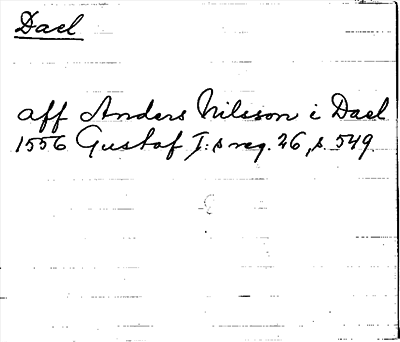 Dael
aff Anders Nilsson i Dael
1556 Gustaf I:s reg. 26, s. 549